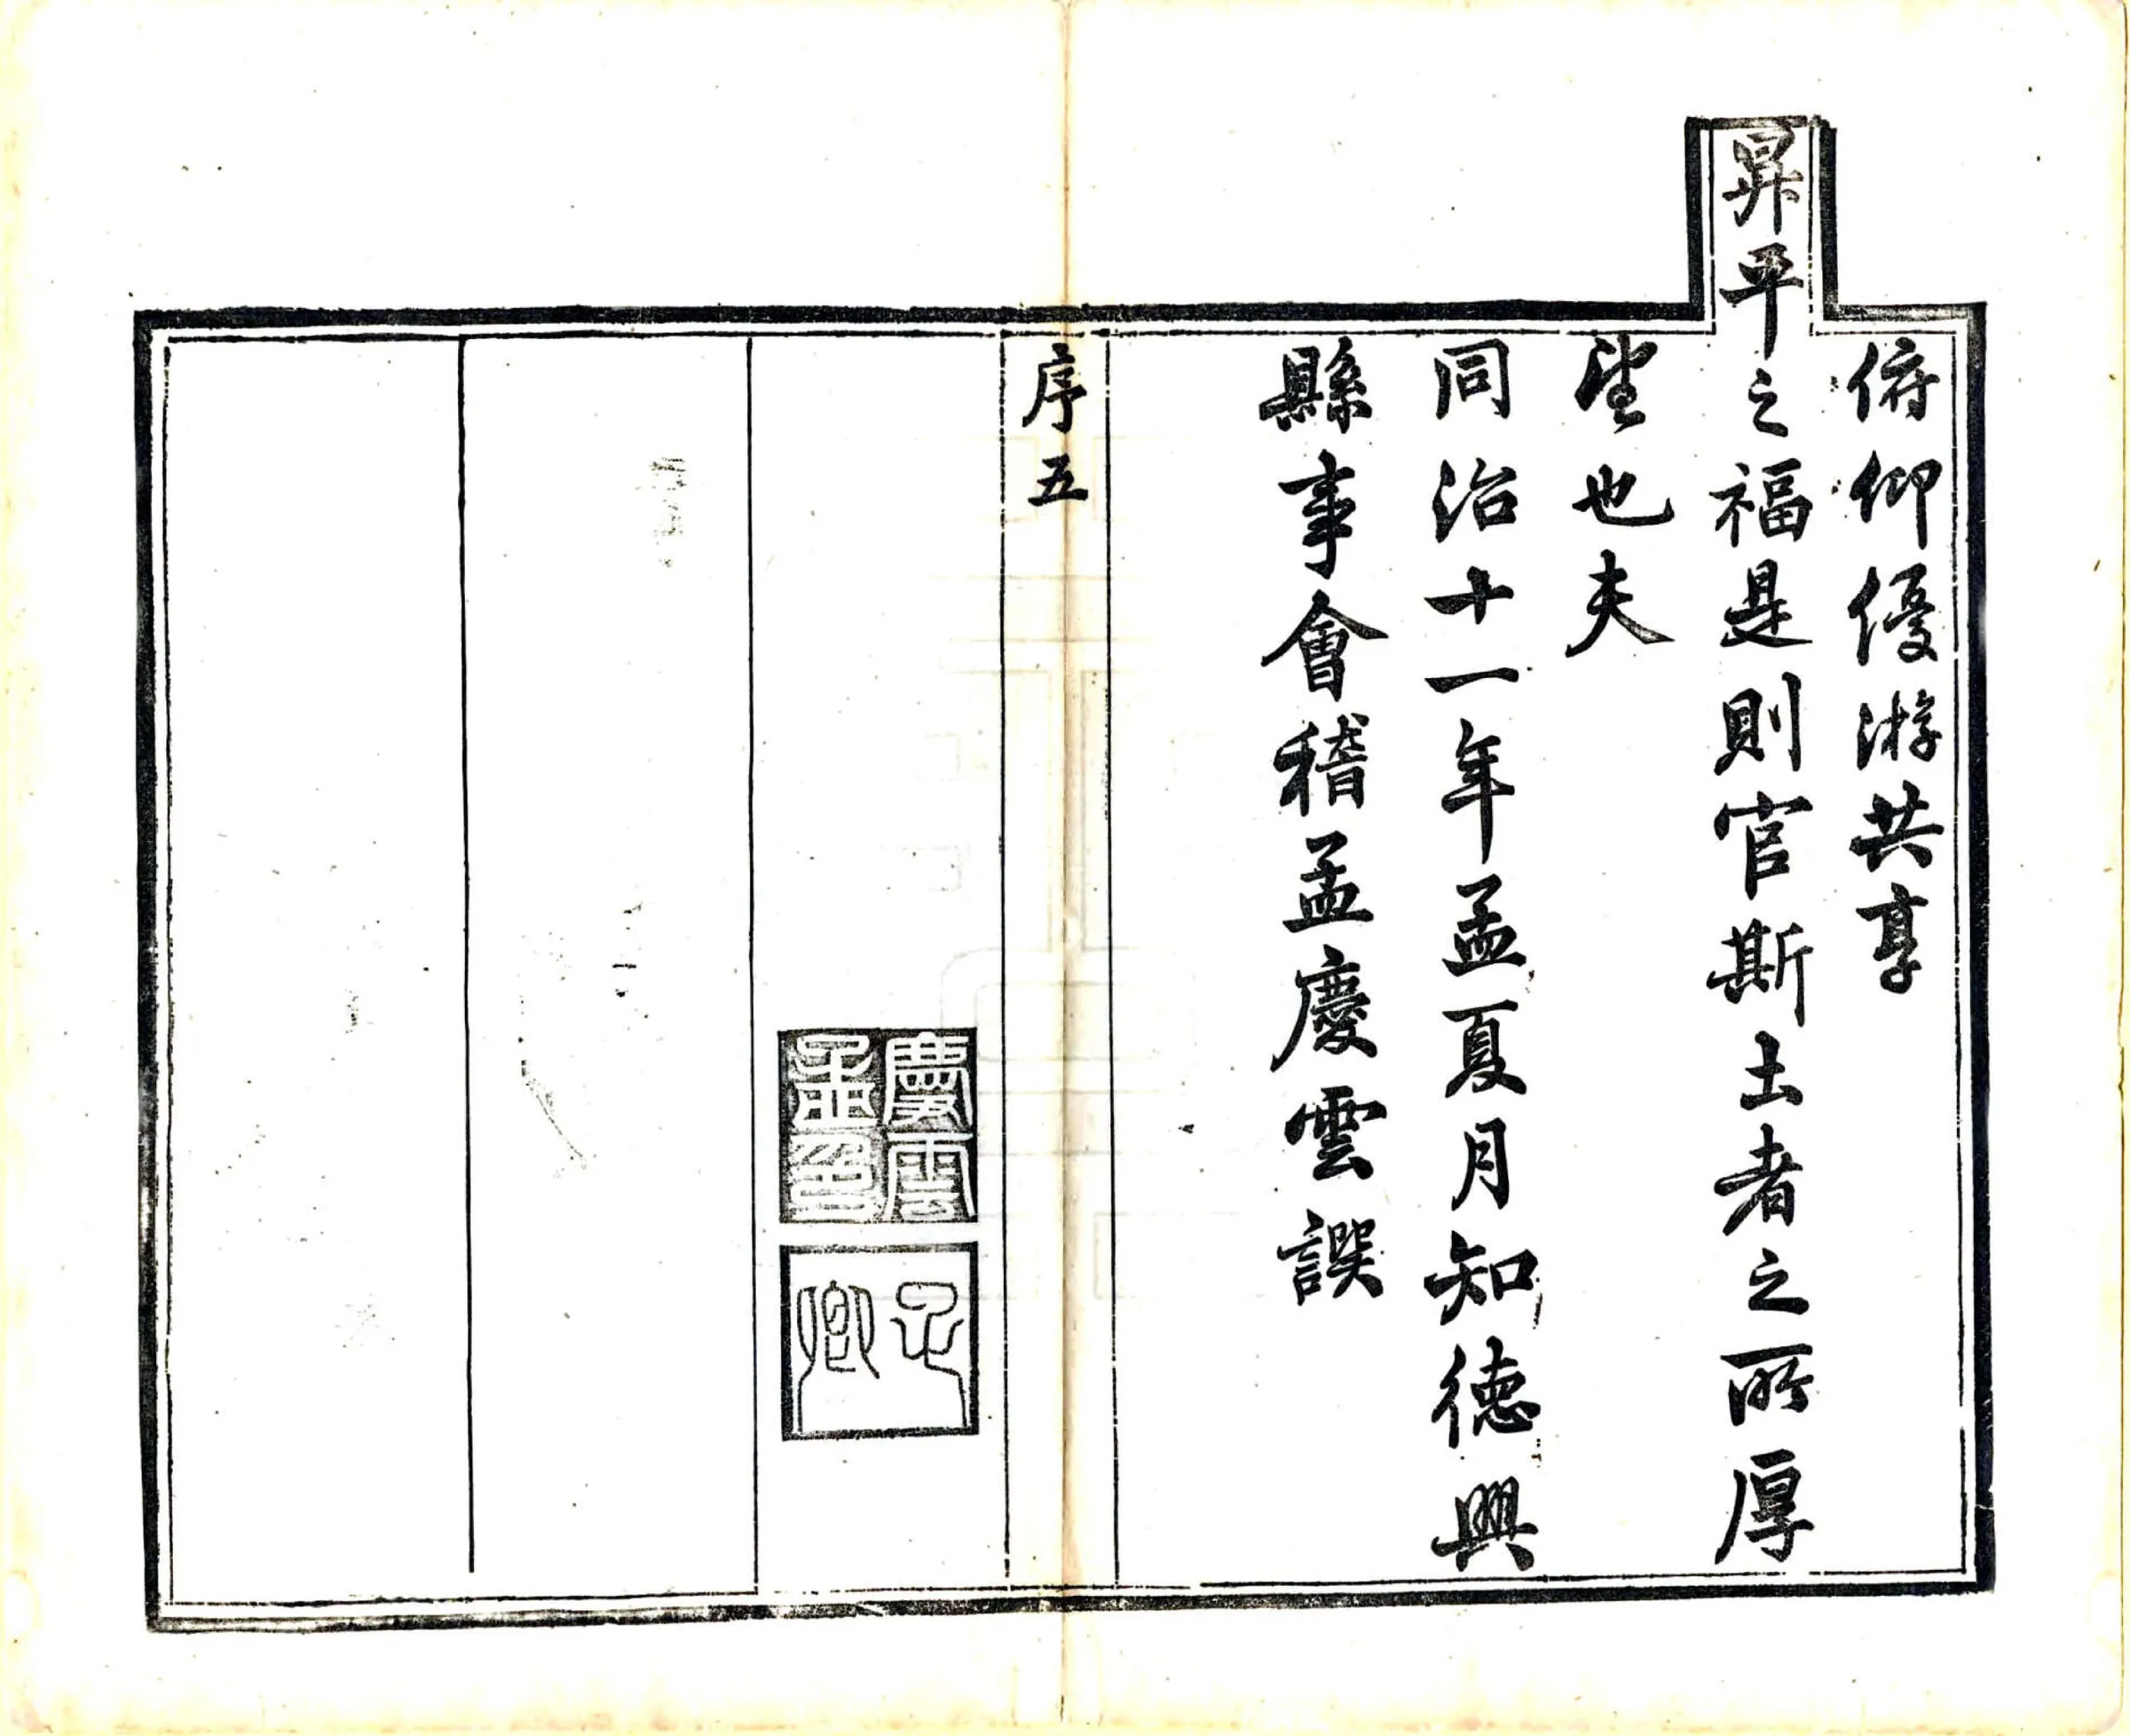 俯仰優游共享
昇平之福是則官斯土者之所厚
望也夫
同治十一年孟夏月知德興
縣事會稽孟慶雲譔
序五
慶雲
孟印
卿